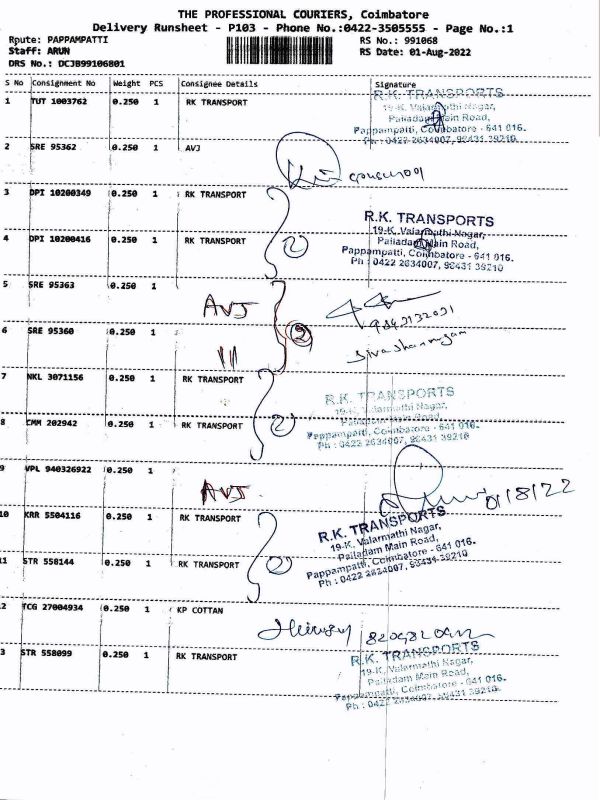 THE PROFESSIONAL COURIERS, Coimbatore
Delivery Runsheet - P103 - Phone No.:0422-3505555 - Page No.:1
Route: PAPPAMPATTI
RS No.: 991068
Staff: ARUN
RS Date: 01-Aug-2022
DRS No.: DCJB99106801
S No Consignment No Weight PCS Consignee Details Signature
1 TUT 1003762 0.250 1 RK TRANSPORT
R.K. TRANSPORTS
19-K, Valarmathi Nagar,
Palladam Main Road,
Pappampatti, Coimbatore - 641 016.
Ph : 0422 2634007, 98431 39210
2 SRE 95362 0.250 1 AVJ
3 DPI 10200349 0.250 1 RK TRANSPORT
R.K. TRANSPORTS
19-K, Valarmathi Nagar,
Palladam Main Road,
Pappampatti, Coimbatore - 641 016.
Ph : 0422 2634007, 98431 39210
4 DPI 10200416 0.250 1 RK TRANSPORT
2
5 SRE 95363 0.250 1
AVJ
2
6 SRE 95360 0.250 1
11
Sivashanmugam
7 NKL 3071156 0.250 1 RK TRANSPORT
R.K. TRANSPORTS
19-K, Valarmathi Nagar,
Palladam Main Road,
Pappampatti, Coimbatore - 641 016.
Ph : 0422 2634007, 98431 39210
8 CMM 202942 0.250 1 RK TRANSPORT
2
9 VPL 940326922 0.250 1
AVJ
1/8/22
10 KRR 5504116 0.250 1 RK TRANSPORT
R.K. TRANSPORTS
19-K, Valarmathi Nagar,
Palladam Main Road,
Pappampatti, Coimbatore - 641 016.
Ph : 0422 2634007, 98431 39210
11 STR 558144 0.250 1 RK TRANSPORT
2
2 TCG 27004934 0.250 1 KP COTTAN
3 STR 558099 0.250 1 RK TRANSPORT
R.K. TRANSPORTS
19-K, Valarmathi Nagar,
Palladam Main Road,
Pappampatti, Coimbatore - 641 016.
Ph : 0422 2634007, 98431 39210